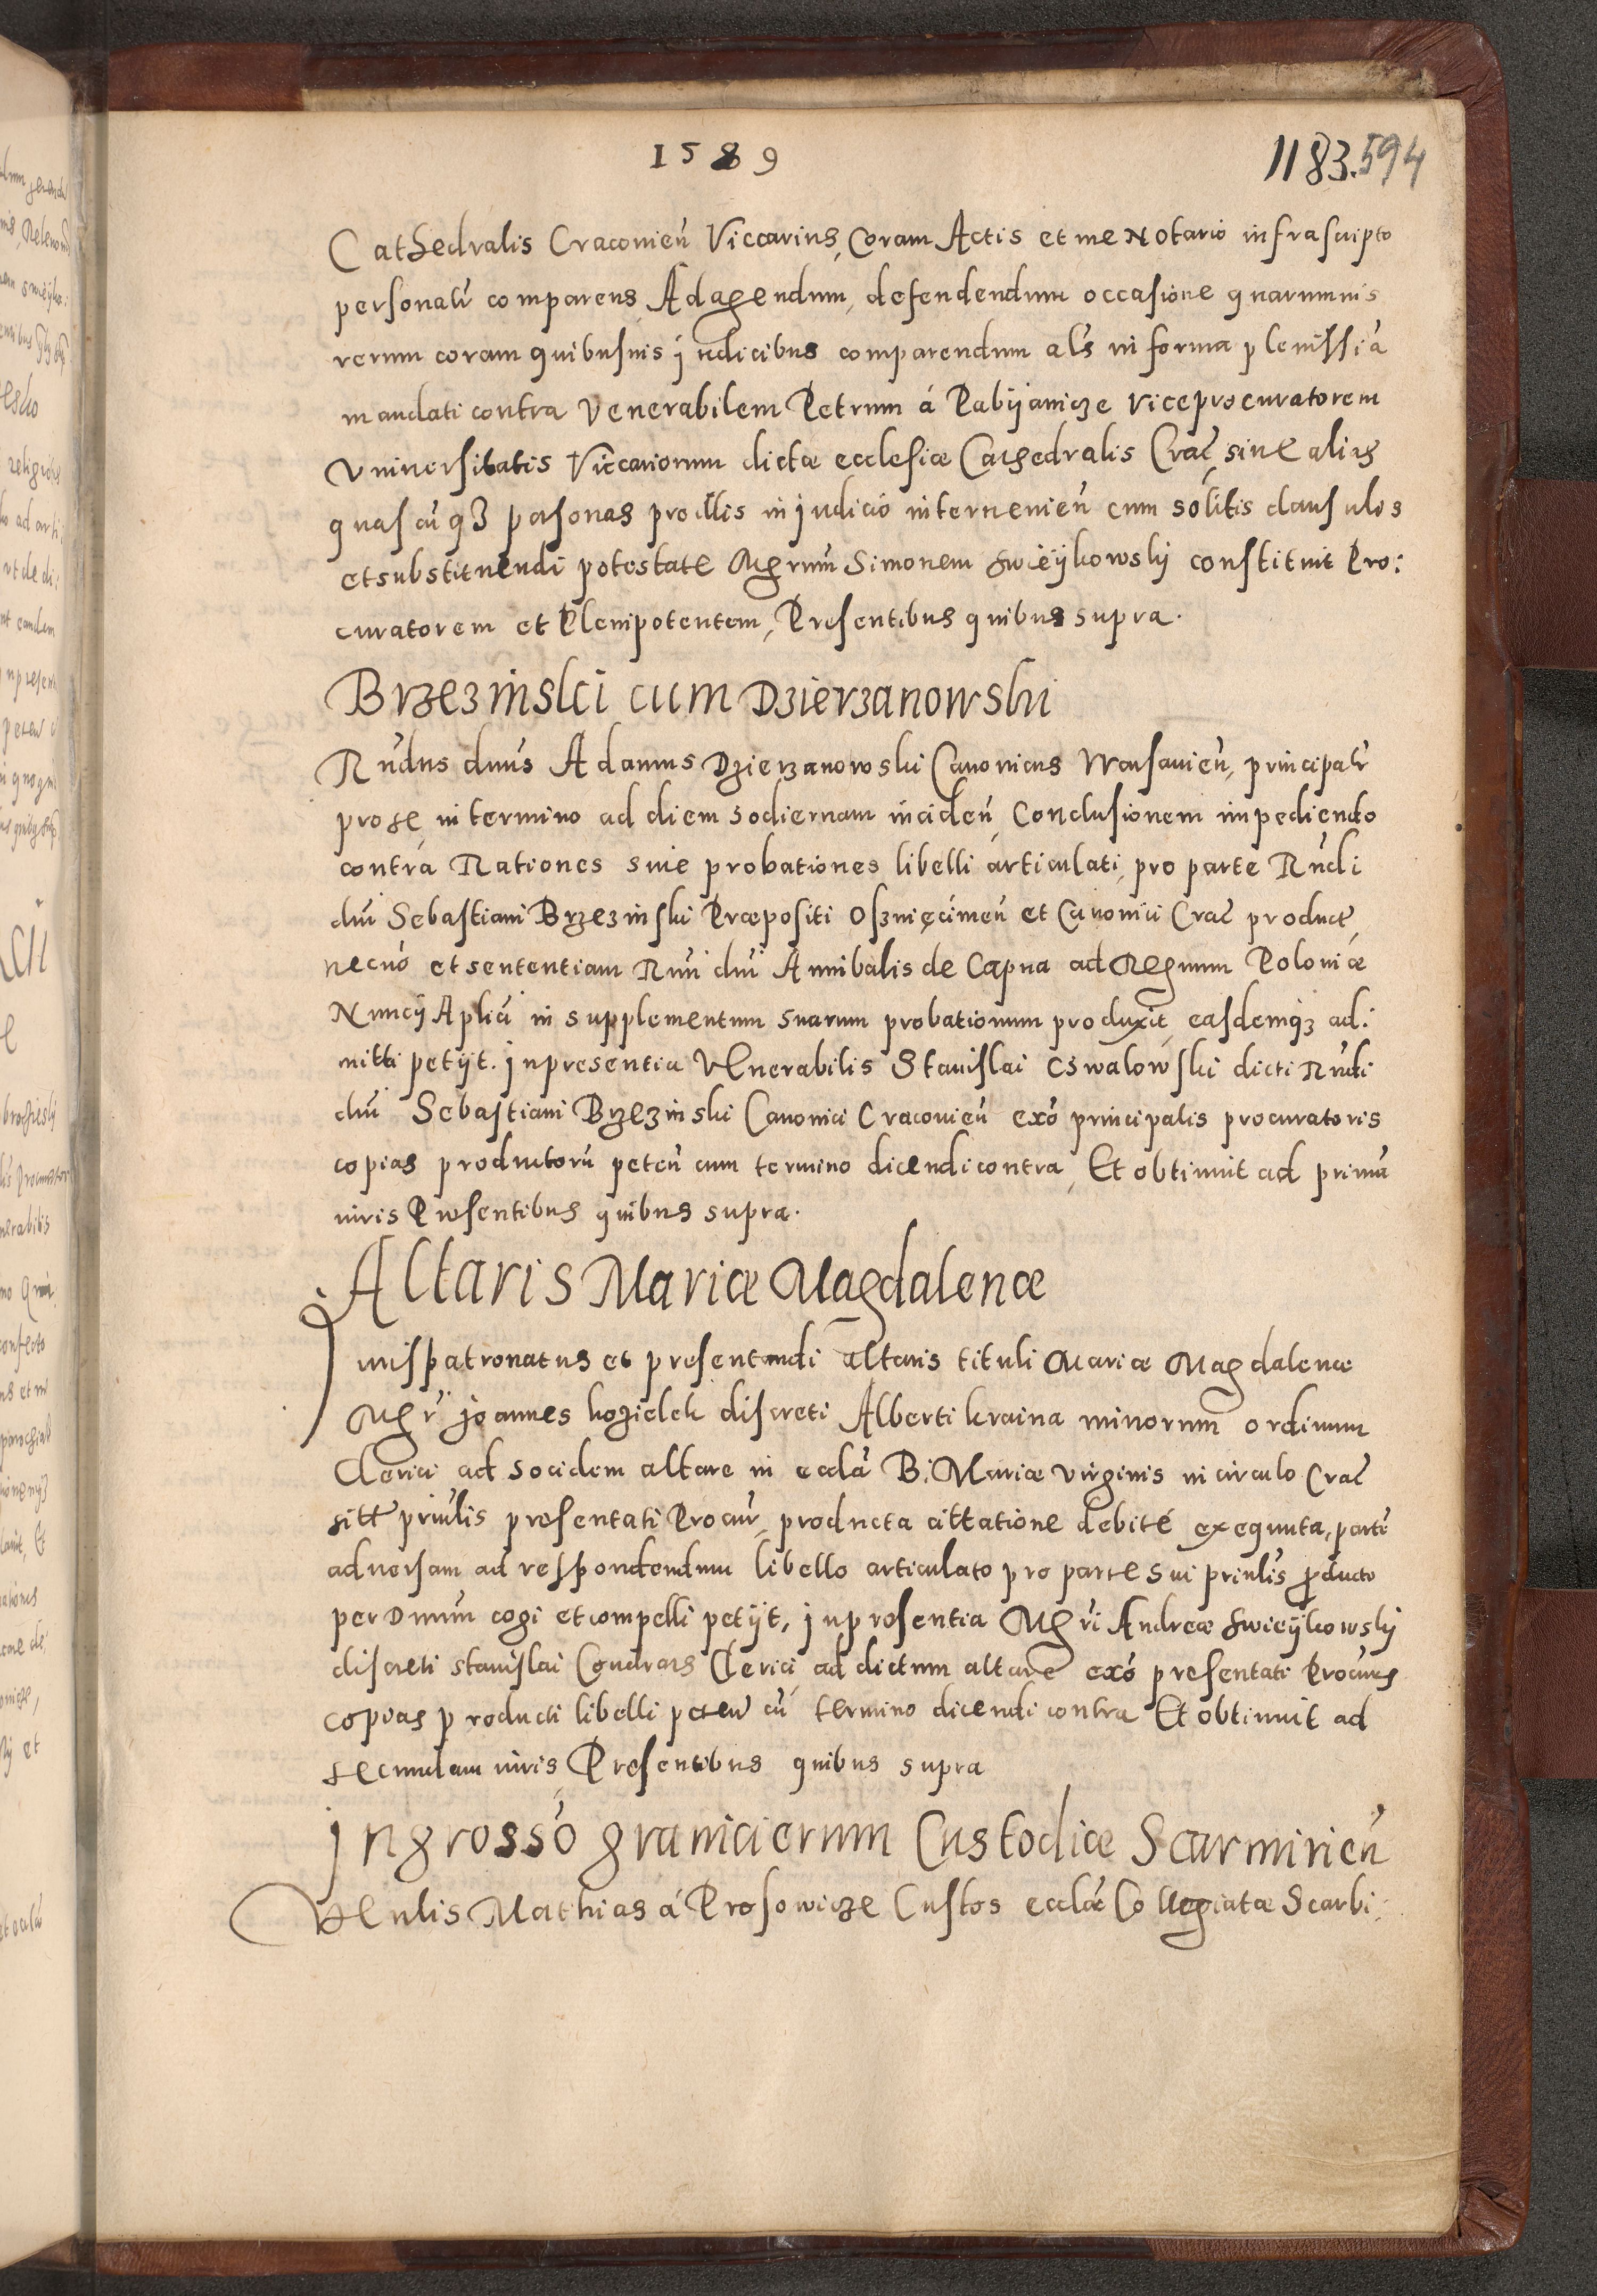 1589
1183.594
Cathedralis Cracovień Viccarius, Coram Actis et me Notario infrascripto
personalr̃ comparens, Ad agendum, defendendum occasione quarumuis
rerum coram quibusuis judicibus comparendum als in forma plenissiã
mandati contra Venerabilem Petrum á Pabÿanicze viceprocuratorem
Vniuersitatis Viccariorum dictæ ecclesiæ Cathedralis Crac̃ siue alias
quascũqȝ personas pro illis in judicio interuenień cum solitis clausulis
et substituendi potestate Mgrum̃ Simonem Swieÿkowskÿ constituit Pro:
curatorem et Plenipotentem, Presentibus quibus supra.
Brzezinski cum Dzierzanowski
Rñdus dnus̃ Adamus Dzierzanowski Canonicus Warsauień, principalr̃
pro se, in termino ad diem hodiernam incideń, Conclusionem impediendo
contra Rationes siue probationes libelli articulati, pro parte Rñdi
dnĩ Sebastiani Brzezinski Præpositi Oszwięcimeń et Canonici Crac̃ product̃,
necnõ et sententiam Rmi dnĩ Annibalis de Capua ad Regnum Poloniæ
Nuncÿ Aplici in supplementum suarum probationum produxit, easdemqȝ ad:
mitti petÿt. In presentia Venerabilis Stanislai Chwalowski dicti Rñdi
dnĩ Sebastiani Brzezinski Canonici Cracovień exõ principalis procuratoris
copias productorũ peteń cum termino dicendi contra, Et obtinuit ad primã
iuris Presentibus quibus supra.
Altaris Mariæ Magdalenæ
Iurispatronatus et presentandi altaris tituli Mariæ Magdalenæ
Mgr̃ Joannes Kozielek discreti Alberti Kraina minorum ordinum
Clerici ad hocidem altare in ecclã B. Mariæ Virginis in circulo Crac̃
sitt̃ priũlis presentati Procur̃, producta cittatione debité exequuta, partẽ
aduersam ad respondendum libello articulato pro parte sui priũlis producto
per Dnum̃ cogi et compelli petÿt, In presentia Mgri Andreæ Swieÿkowskÿ
discreti Stanislai Clerici ad dictum altare exõ presentati Procuris
copias producti libelli peteń cũ termino dicendi contra Et obtinuit ad
secundam iuris Presentibus quibus supra
Ingrosso granicierum Custodiæ Scarmirień
Venlis Mathias á Prosowicze Custos ecclæ Collegiatæ Scarbi: